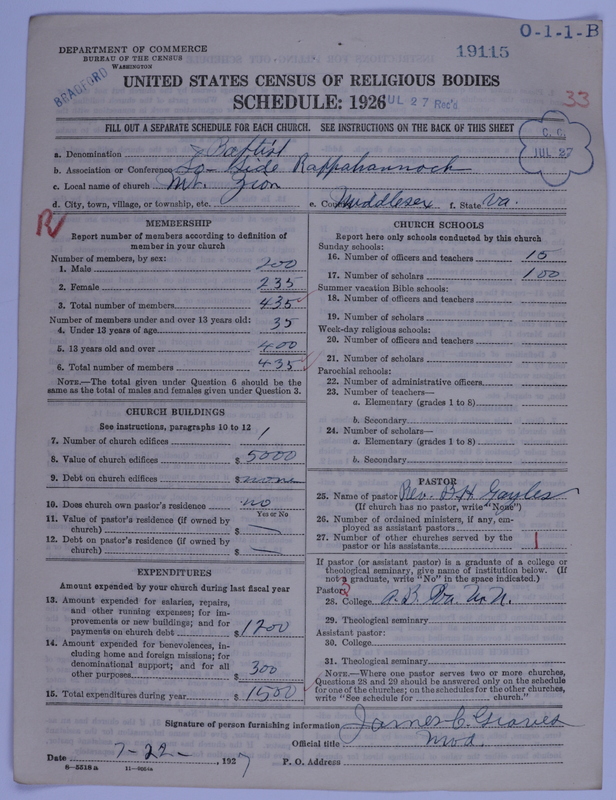 0-1-1-B
DEPARTMENT OF COMMERCE
BUREAU OF THE CENSUS
WASHINGTON
19115
BRADFORD
UNITED STATES CENSUS OF RELIGIOUS BODIES
SCHEDULE: 1926
JUL 27 Rec'd
33
FILL OUT A SEPARATE SCHEDULE FOR EACH CHURCH. SEE INSTRUCTIONS ON THE BACK OF THIS SHEET
C. C.
JUL 27
a. Denomination Baptist
b. Association or Conference So-Side Rappahannock
c. Local name of church Mt. Zion
d. City, town, village, or township, etc.
e. County Middlesex f. State Va.
R
MEMBERSHIP
Report number of members according to definition of
member in your church
Number of members, by sex:
1. Male 200
2. Female 235
3. Total number of members 435
Number of members under and over 13 years old:
4. Under 13 years of age 35
5. 13 years old and over 400
6. Total number of members 435
NOTE.—The total given under Question 6 should be the
same as the total of males and females given under Question 3.
CHURCH BUILDINGS
See instructions, paragraphs 10 to 12
7. Number of church edifices 1
8. Value of church edifices $ 5000
9. Debt on church edifices $ none
10. Does church own pastor's residence no
Yes or No
11. Value of pastor's residence (if owned by
church) $
12. Debt on pastor's residence (if owned by
church) $
EXPENDITURES
Amount expended by your church during last fiscal year
13. Amount expended for salaries, repairs,
and other running expenses; for im-
provements or new buildings; and for
payments on church debt $ 1200
14. Amount expended for benevolences, in-
cluding home and foreign missions; for
denominational support; and for all
other purposes $ 300
15. Total expenditures during year $ 1500
CHURCH SCHOOLS
Report here only schools conducted by this church
Sunday schools:
16. Number of officers and teachers 15
17. Number of scholars 100
Summer vacation Bible schools:
18. Number of officers and teachers
19. Number of scholars
Week-day religious schools:
20. Number of officers and teachers
21. Number of scholars
Parochial schools:
22. Number of administrative officers
23. Number of teachers—
a. Elementary (grades 1 to 8)
b. Secondary
24. Number of scholars—
a. Elementary (grades 1 to 8)
b. Secondary
PASTOR
25. Name of pastor Rev. B. H. Gayles
(If church has no pastor, write "None")
26. Number of ordained ministers, if any, em-
ployed as assistant pastors
27. Number of other churches served by the
pastor or his assistants 1
If pastor (or assistant pastor) is a graduate of a college or
theological seminary, give name of institution below. (If
not a graduate, write "No" in the space indicated.)
Pastor:
28. College A. B. Va. U. N.
29. Theological seminary
Assistant pastor:
30. College
31. Theological seminary
NOTE.—Where one pastor serves two or more churches,
Questions 28 and 29 should be answered only on the schedule
for one of the churches; on the schedules for the other churches,
write "See schedule for church."
Signature of person furnishing information James C. Graves
Official title Mod.
Date 7-22-, 1927 P. O. Address
8-5518a 11-9054a